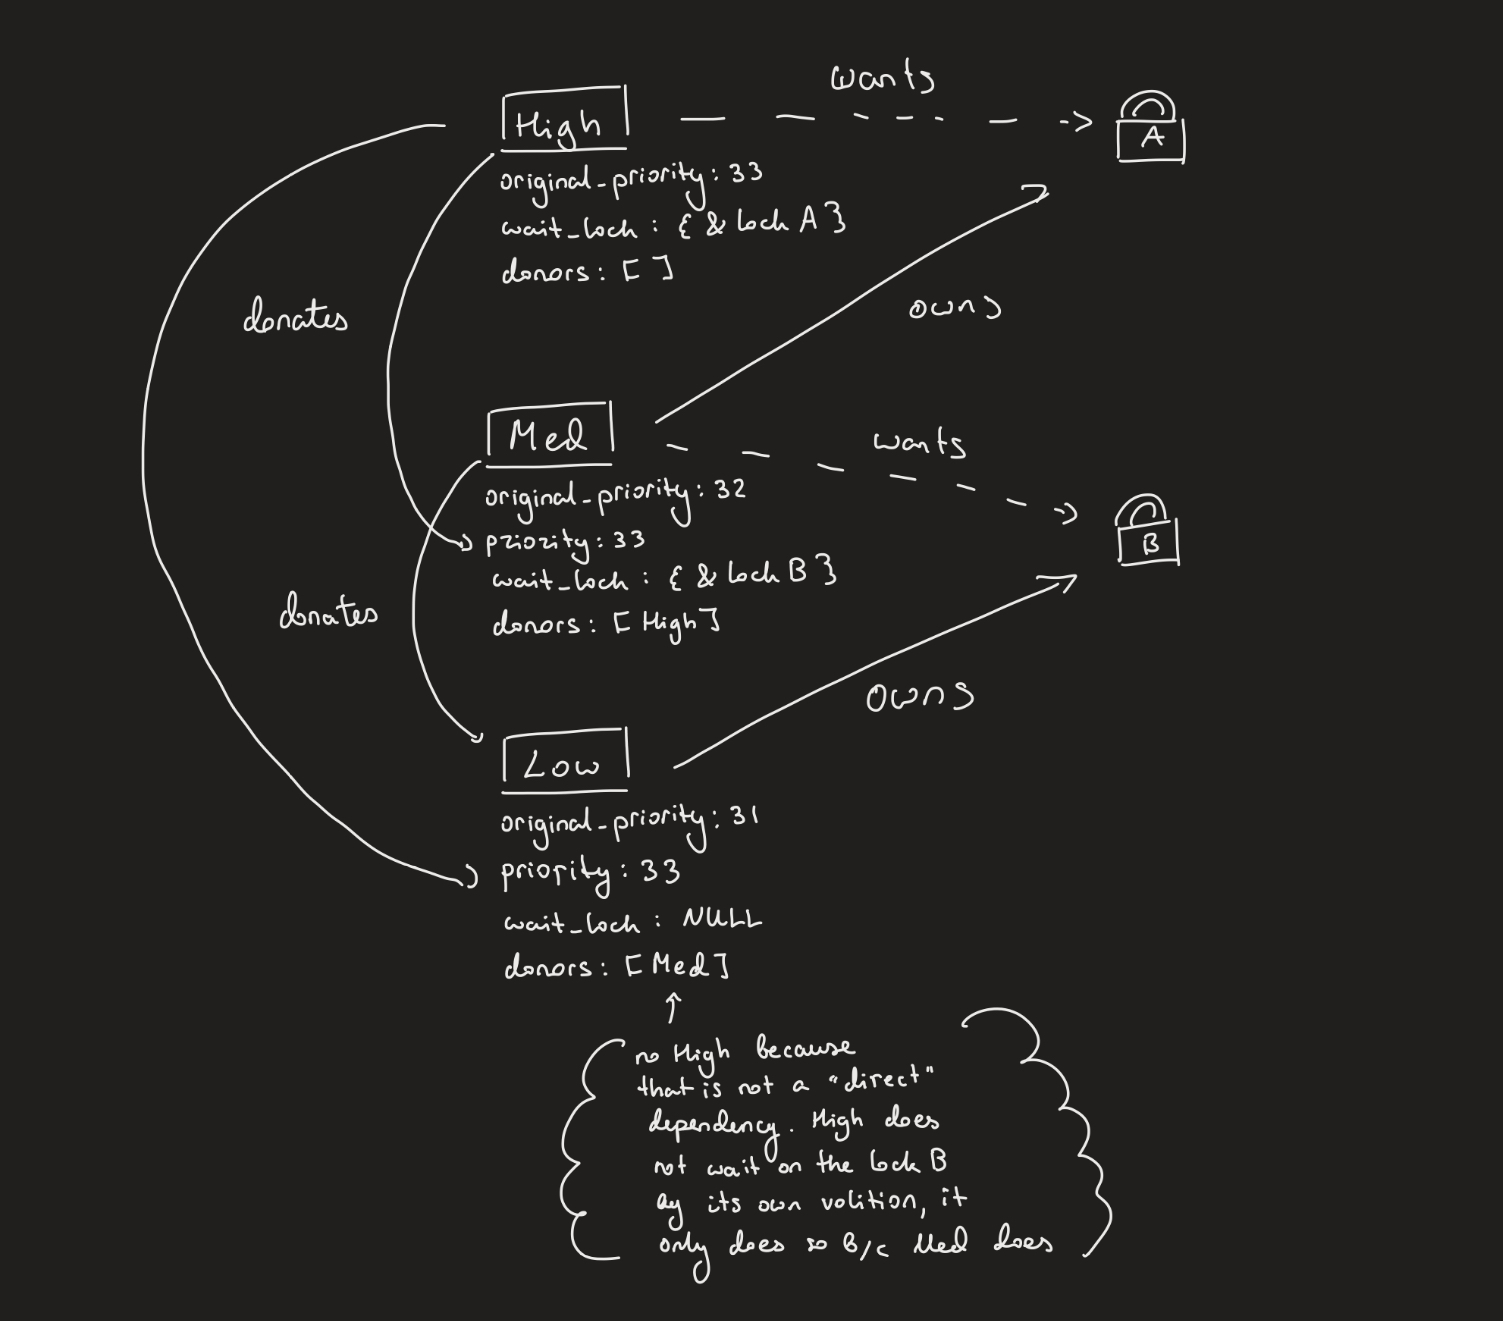 wants
High
A
original_priority: 33
wait_lock : { & lock A }
donors: [ ]
donates
owns
Med
wants
original_priority: 32
priority: 33
wait_lock : { & lock B }
donors: [ High ]
B
donates
owns
Low
original_priority: 31
priority: 33
wait_lock : NULL
donors: [ Med ]
no High because
that is not a "direct"
dependency. High does
not wait on the lock B
by its own volition, it
only does so B/c Med does